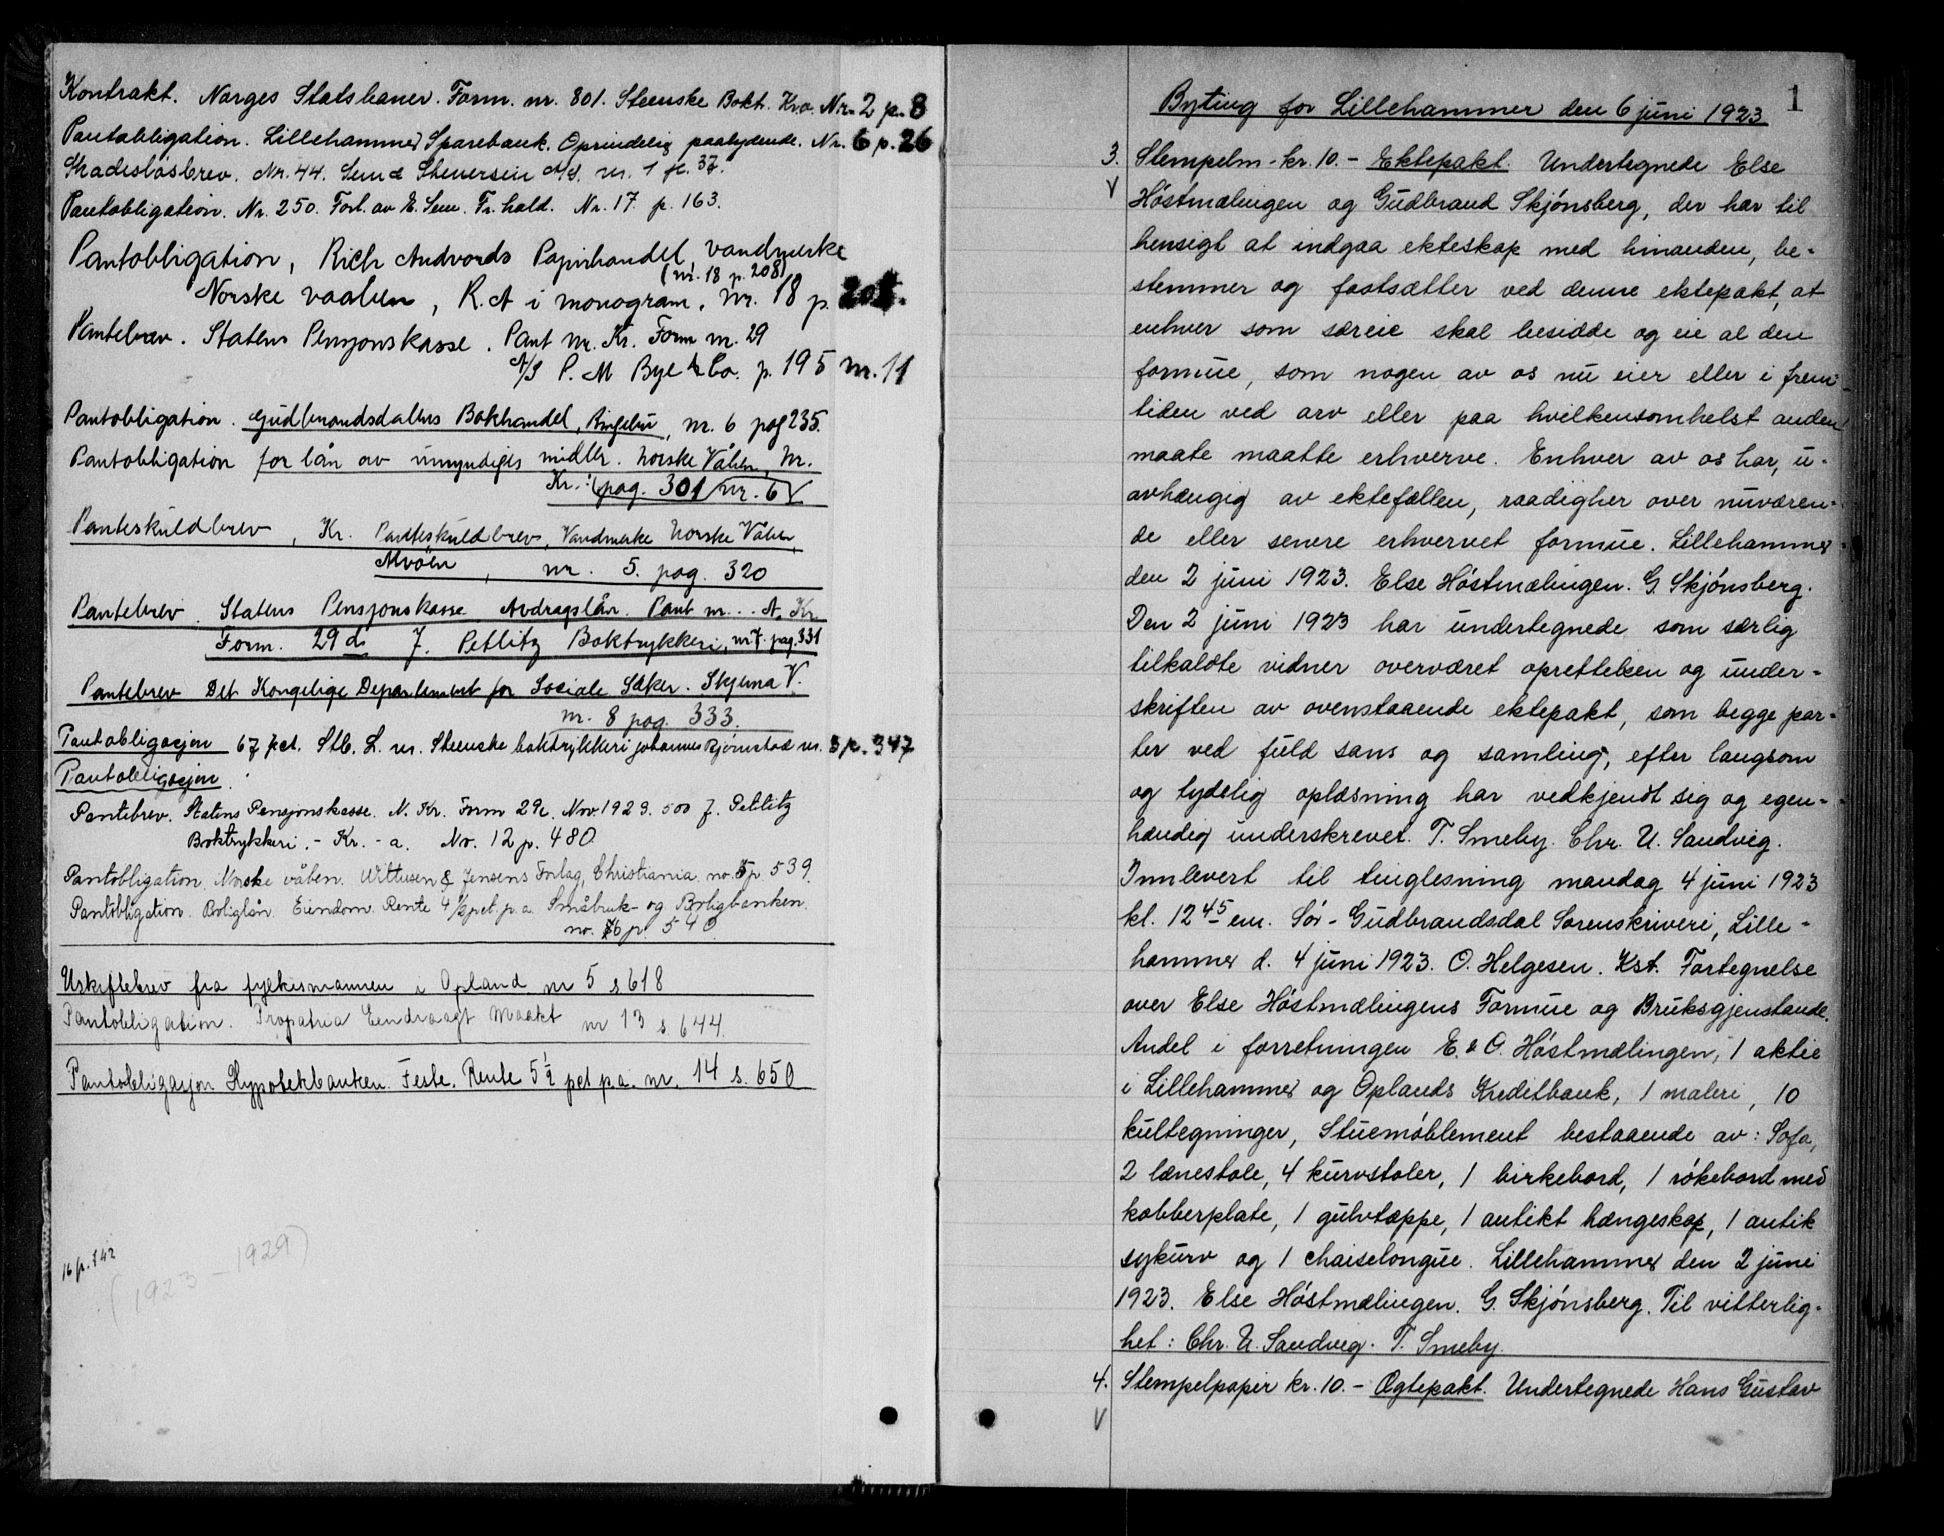 Kontrakt. Norges Statsbaner. Form. nr. 801. Steenske Bokt. Kra. Nr. 2 p. 8
Pantobligation. Lillehammer Sparebank. Oprindelig paalydende. Nr. 6 p. 26
Skadesløsbrev. Nr. 44. Sem & Stenersen A/S. nr. 1 p. 37.
Pantobligation. Nr. 250. Forl. av E. Sem. Fr.hald. Nr. 17. p. 163.
Pantobligation, Rich Andvords Papirhandel, vandmerke
(nr. 18 p. 208)
Norske vaaben, R. A i monogram. Nr. 18 p. 208.
Pantebrev. Statens Pensjonskasse. Pant nr. Kr. Form nr. 29
A/S P. M Bye & Co. p. 195 nr. 11
Pantobligation. Gudbrandsdalens Bokhandel, Ringebu, nr. 6 pag 235.
Pantobligation for lån av umyndiges midler. Norske Våben, Nr.
Kr.: (pag. 301 nr. 6)
Panteskuldbrev, Kr. Panteskuldbrev, Vandmerke Norske Våben,
Alvøen, nr. 5. pag. 320
Pantebrev. Statens Pensjonskasse Avdragslån. Pant nr. . . A. Kr.
Form. 29 d. J. Petlitz Boktrykkeri, nr 7. pag. 331
Pantebrev Det Kongelige Departement for Sociale Saker. Skjema V.
nr. 8 pag. 333.
Pantobligasjon 67 pct. Stb. L. nr. Steenske boktrykkeri Johannes Bjørnstad nr. 3 p. 347
Pantobligasjon.
Pantebrev. Statens Pensjonskasse. N. Kr. Form 29c. Nov. 1923. 500 J. Petlitz
Boktrykkeri. - Kr. - a. No. 12 p. 480.
Pantobligation. Norske våben. Wittusen & Jensens Forlag, Christiania. no. 5 p. 539.
Pantobligation. Boliglån. Eiendom. Rente 4 1/2 pct. p. a. Småbruk- og Boligbanken.
no. 6 p. 540
Uskiftebrev fra fylkesmannen i Opland nr 5 s 618
Pantobligation. Propatria Eendragt Maakt nr 13 s. 644.
Pantobligasjon Hypotekbanken. Feste. Rente 5 1/2 pct p.a. nr. 14 s. 650
16 p. 742
(1923 - 1929)
1
Byting for Lillehammer den 6 juni 1923
3. Stempelm- kr. 10. - Ektepakt. Undertegnede Else
V Høstmælingen og Gudbrand Skjønsberg, der har til
hensigt at indgaa ekteskap med hinanden, be-
stemmer og fastsætter ved denne ektepakt, at
enhver som særeie skal besidde og eie al den
formue, som nogen av os nu eier eller i frem-
tiden ved arv eller paa hvilkensomhelst anden
maate maatte erhverve. Enhver av os har, u-
avhængig av ektefællen, raadighet over nuværen-
de eller senere erhvervet formue. Lillehammer
den 2 juni 1923. Else Høstmælingen. G. Skjønsberg.
Den 2 juni 1923 har undertegnede som særlig
tilkaldte vidner overværet oprettelsen og under-
skriften av ovenstaaende ektepakt, som begge par-
ter ved fuld sans og samling, efter langsom
og tydelig oplæsning har vedkjendt sig og egen-
hændig underskrevet. T. Smeby. Chr. U. Sandvig.
Innlevert til tinglesning mandag 4 juni 1923
kl. 12 45 em. Sør-Gudbrandsdal Sorenskriveri, Lille-
hammer d. 4 juni 1923. O. Helgesen. Kst. Fortegnelse
over Else Høstmælingens Formue og Bruksgjenstande.
Andel i forretningen E. & O. Høstmælingen, 1 aktie
i Lillehammer og Oplands Kreditbank, 1 maleri, 10
kultegninger, Stuemøblement bestaaende av: Sofa,
2 lænestole, 4 kurvstoler, 1 birkebord, 1 røkebord med
kobberplate, 1 gulvtæppe, 1 antikt hængeskap, 1 antik
sykurv og 1 chaiselongue. Lillehammer den 2 juni
1923. Else Høstmælingen. G. Skjønsberg. Til vitterlig-
het: Chr. U. Sandvig. T. Smeby.
4. Stempelpapir kr. 10. - Ægtepakt. Undertegnede Hans Gustav
V